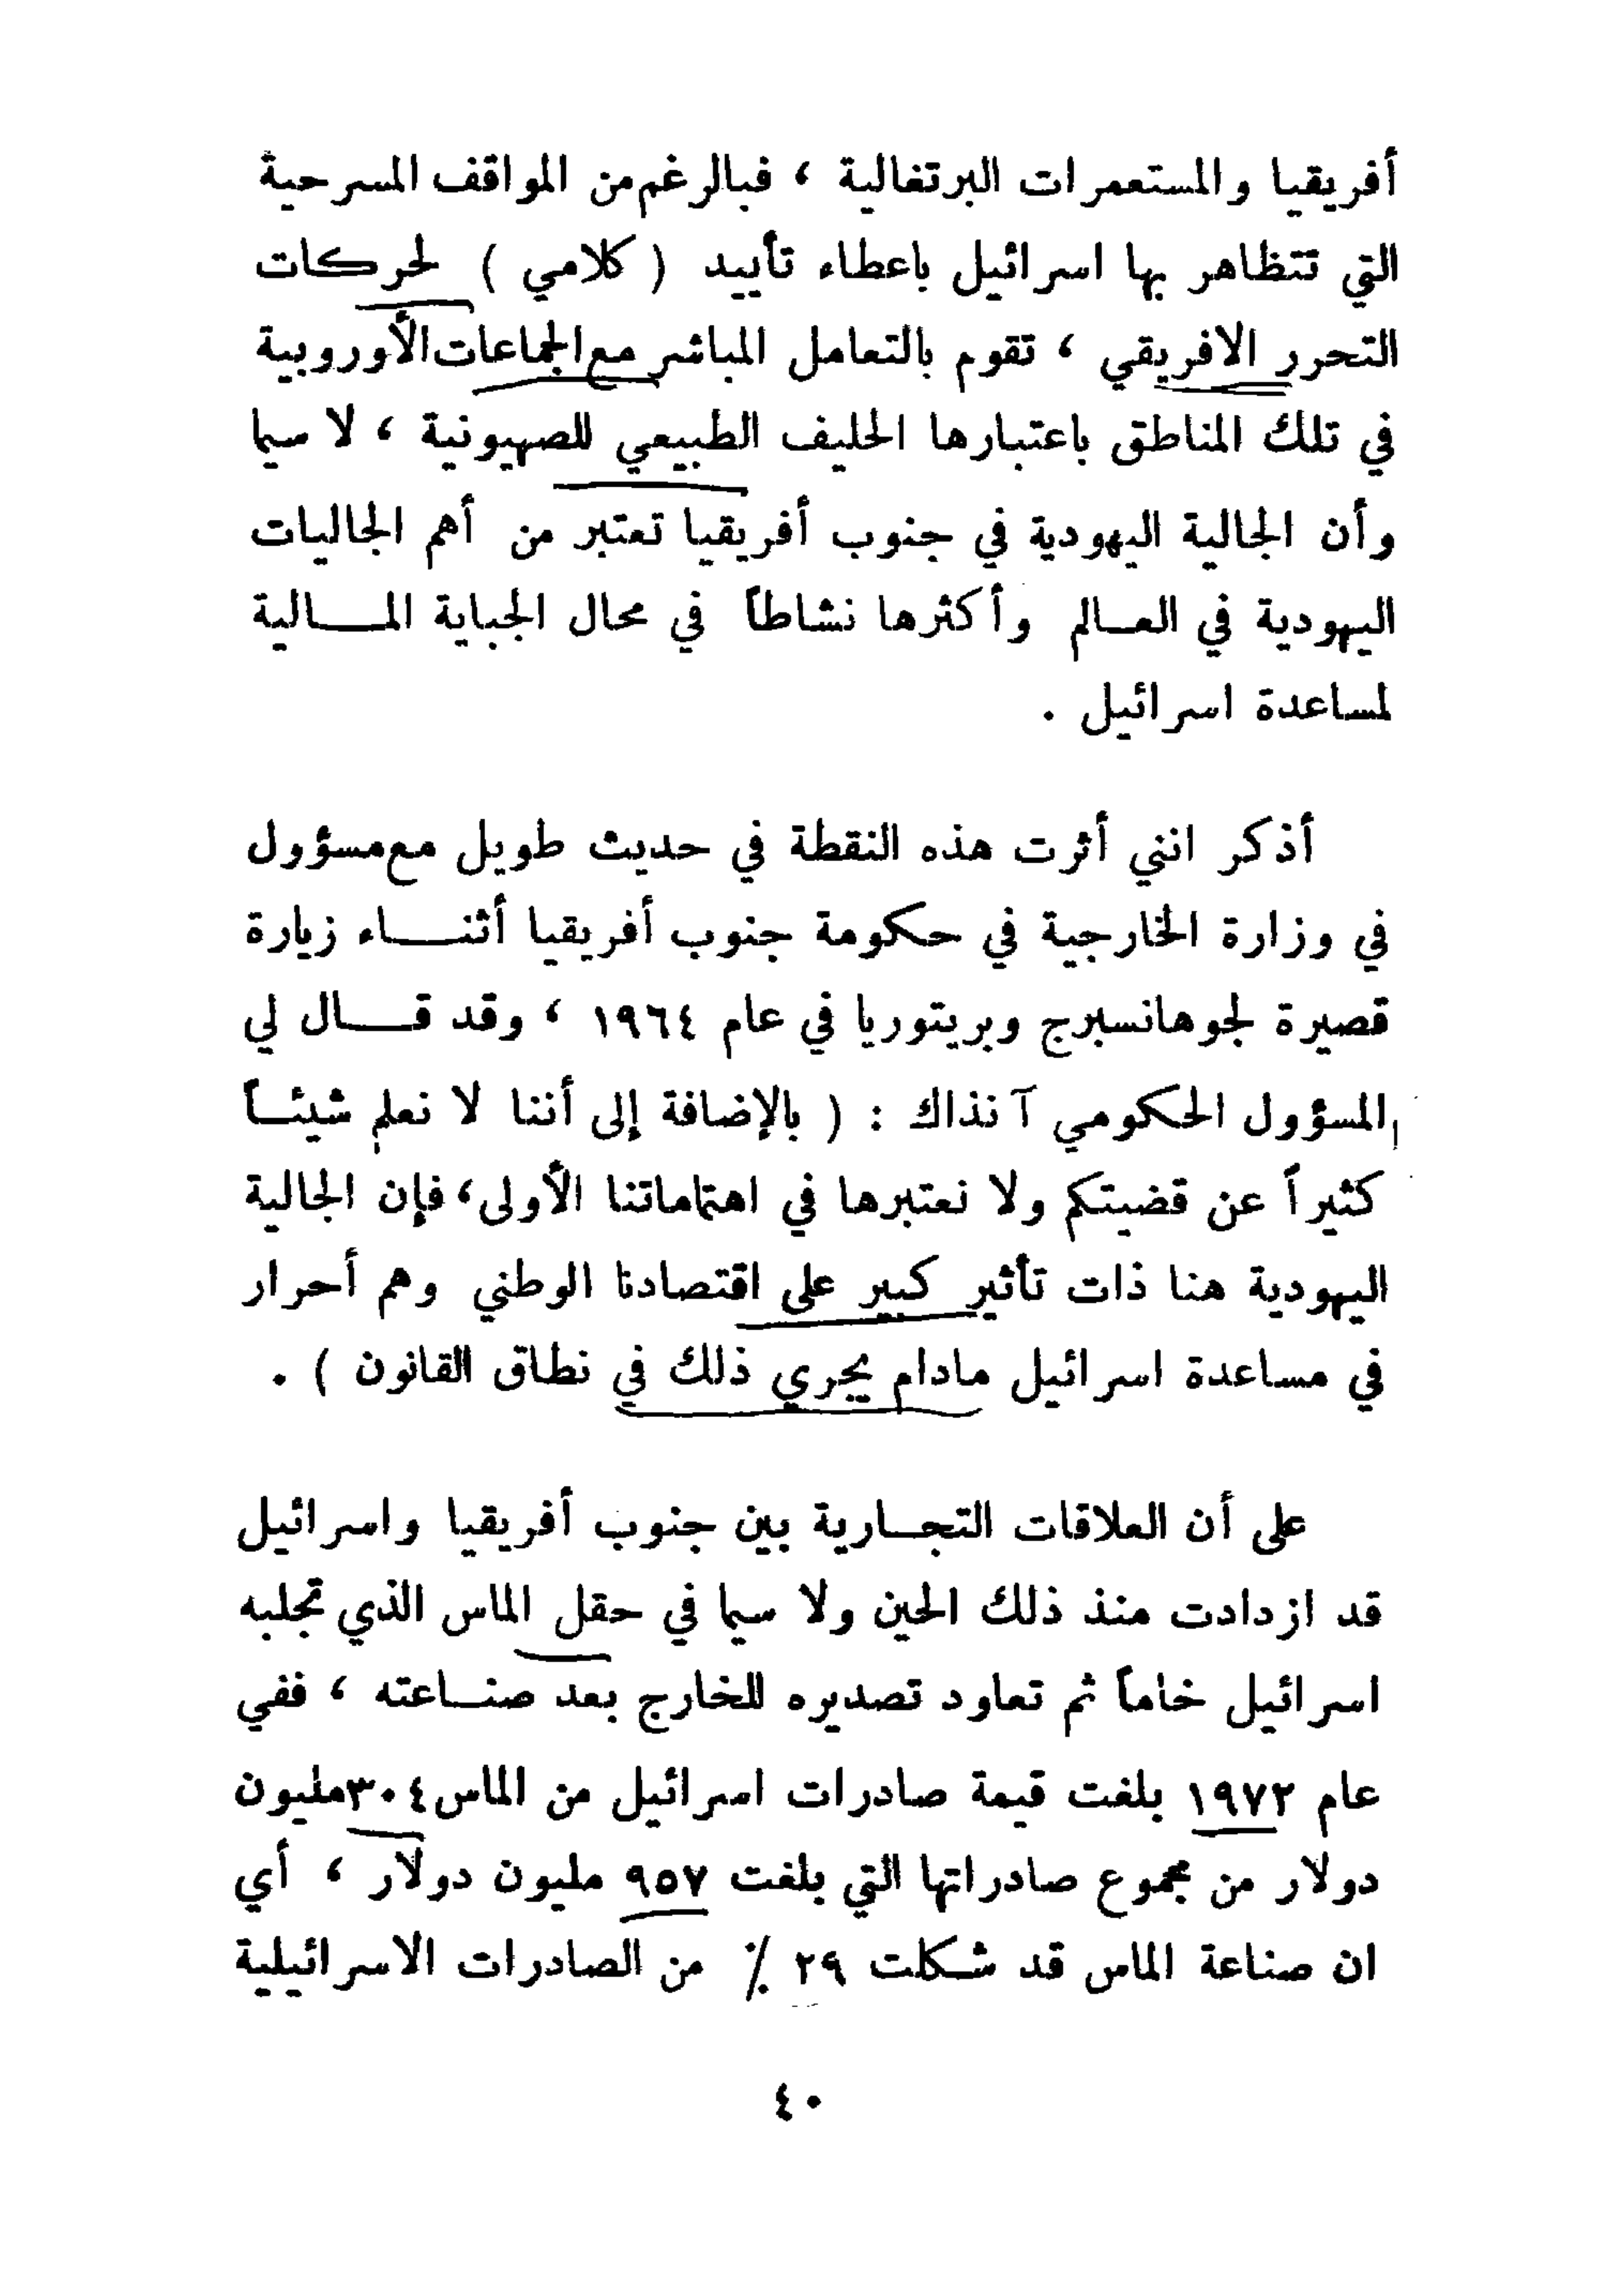 أفريقيا والمستعمرات البرتغالية ، فبالرغم من المواقف المسرحية
التي تتظاهر بها اسرائيل باعطاء تأييد ( كلامي ) لحركات
التحرر الافريقي ، تقوم بالتعامل المباشر مع الجماعات الأوروبية
في تلك المناطق باعتبارها الحليف الطبيعي للصهيونية ، لا سيما
وأن الجالية اليهودية في جنوب أفريقيا تعتبر من أهم الجاليات
اليهودية في العـالم وأكثرها نشاطاً في محال الجباية المـــالية
لمساعدة اسرائيل .
أذكر انني أثرت هذه النقطة في حديث طويل مع مسؤول
في وزارة الخارجية في حكومة جنوب أفريقيا أثنـــاء زيارة
قصيرة لجوهانسبرج وبريتوريا في عام ١٩٦٤ ، وقد قـــال لي
المسؤول الحكومي آنذاك : ( بالإضافة إلى أننا لا نعلم شيئـاً
كثيراً عن قضيتكم ولا نعتبرها في اهتماماتنا الأولى ، فإن الجالية
اليهودية هنا ذات تأثير كبير على اقتصادنا الوطني وهم أحرار
في مساعدة اسرائيل مادام يجري ذلك في نطاق القانون ) .
على أن العلاقات التجـارية بين جنوب أفريقيا واسرائيل
قد ازدادت منذ ذلك الحين ولا سيما في حقل الماس الذي تجلبه
اسرائيل خاماً ثم تعاود تصديره للخارج بعد صنـاعته ، ففي
عام ١٩٧٢ بلغت قيمة صادرات اسرائيل من الماس ٣٠٤ مليون
دولار من مجموع صادراتها التي بلغت ٩٥٧ مليون دولار ، أي
ان صناعة الماس قد شكلت ٢٩ ٪ من الصادرات الاسرائيلية
٤٠